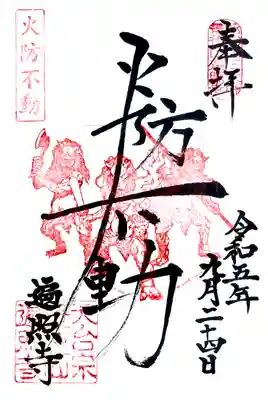 奉拝
令和五年
九月二十四日
火防不動
火防不動
遍照寺